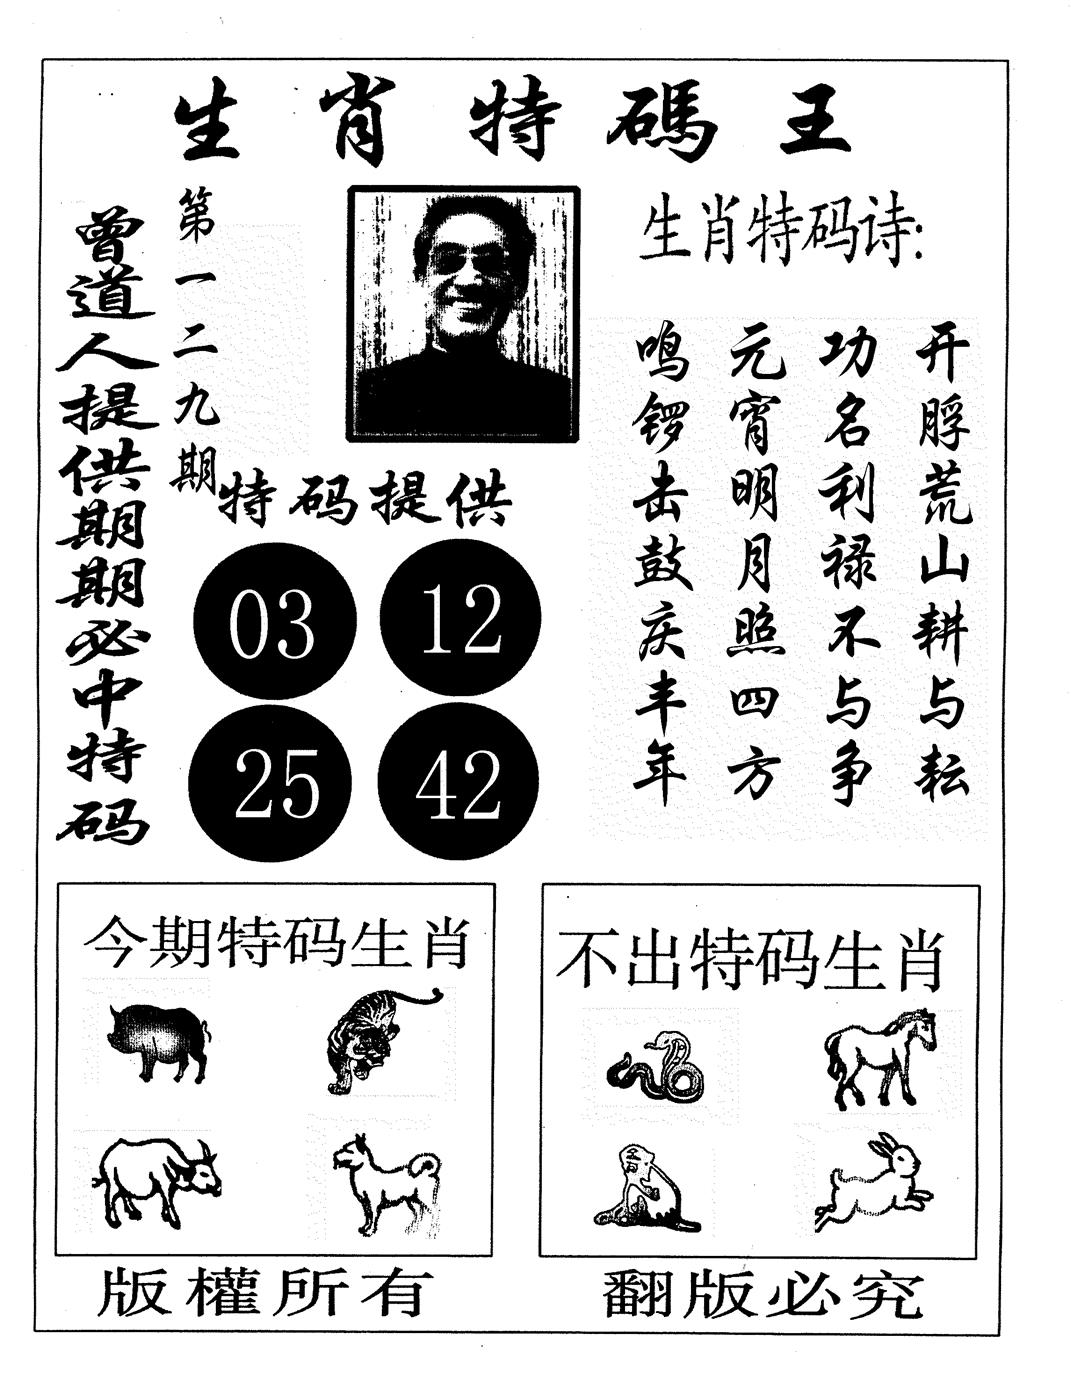 生肖特碼王
曾道人提供期期必中特码
第一二九期
生肖特码诗:
开脬荒山耕与耘
功名利禄不与争
元宵明月照四方
鸣锣击鼓庆丰年
特码提供
03 12
25 42
今期特码生肖
不出特码生肖
版權所有
翻版必究